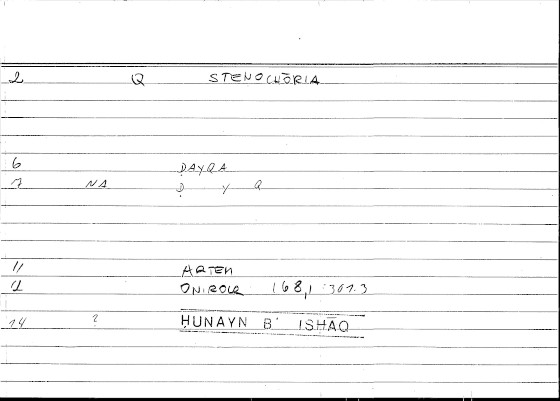 2 Q STENOCHŌRIA
6 ḌAYQA
7 NA Ḍ Y Q
11 ARTEM
12 ONIROCR 168,1 :307.3
14 ? ḤUNAYN B ISḤĀQ